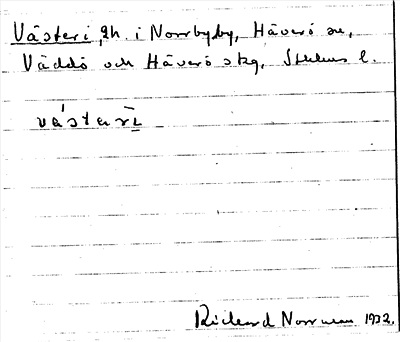 Västeri, gh. i Norrbyby, Häverö sn,
Väddö och Häverö skg, Sthlms l.
västeri
Rickard Norrman 1932.